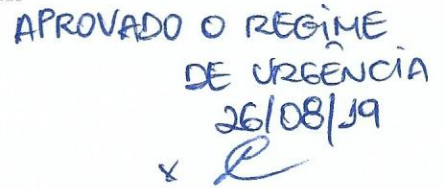 APROVADO O REGIME
DE URGÊNCIA
26/08/19
x